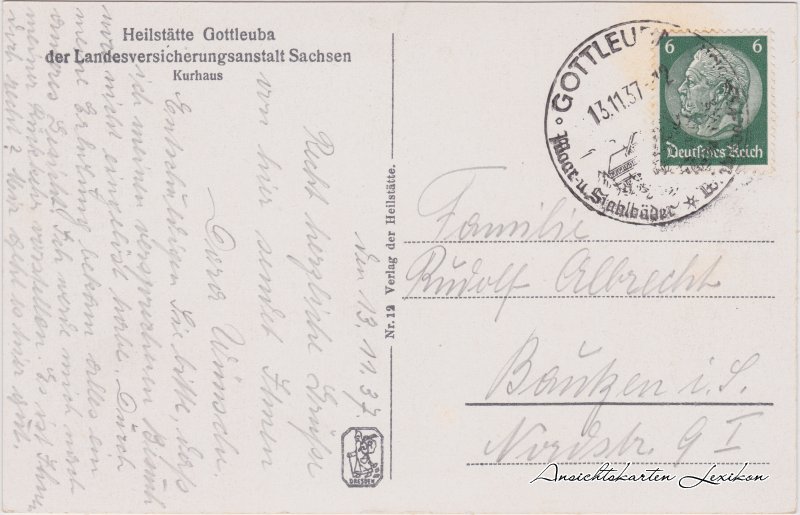 Heilstätte Gottleuba
der Landesversicherungsanstalt Sachsen
Kurhaus
den 13.11.37
Recht herzliche Grüße
von hier sendet Ihnen
Dora
Entschuldigen Sie bitte, daß
ich meinen versprochenen Besuch
nicht eingelöst habe. Durch
meine Erholung bekam alles ein
anderes Gesicht. Ich werde mich nach
meiner vorstellen. Es ist Ihnen
doch recht? Mir geht es hier gut.
Nr. 12 Verlag der Heilstätte.
DRESDEN
GOTTLEUBA
13.11.37-12
Moor- u. Stahlbäder
6 6
Deutsches Reich
Familie
Rudolf Albrecht
Bautzen i. S.
Nordstr. 9 I
Ansichtskarten Lexikon